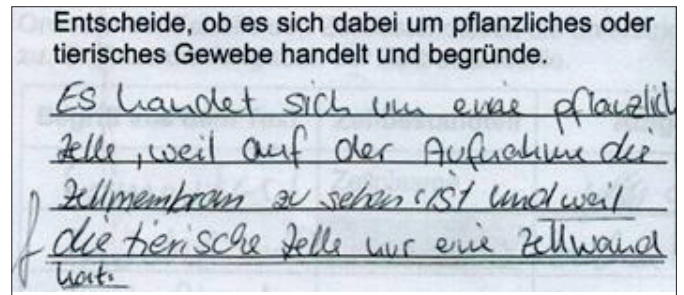 Entscheide, ob es sich dabei um pflanzliches oder
tierisches Gewebe handelt und begründe.
Es handet sich um eine pflanzlich
Zelle, weil auf der Aufnahme die
Zellmembran zu sehen ist und weil
f die tierische Zelle nur eine Zellwand
hat.